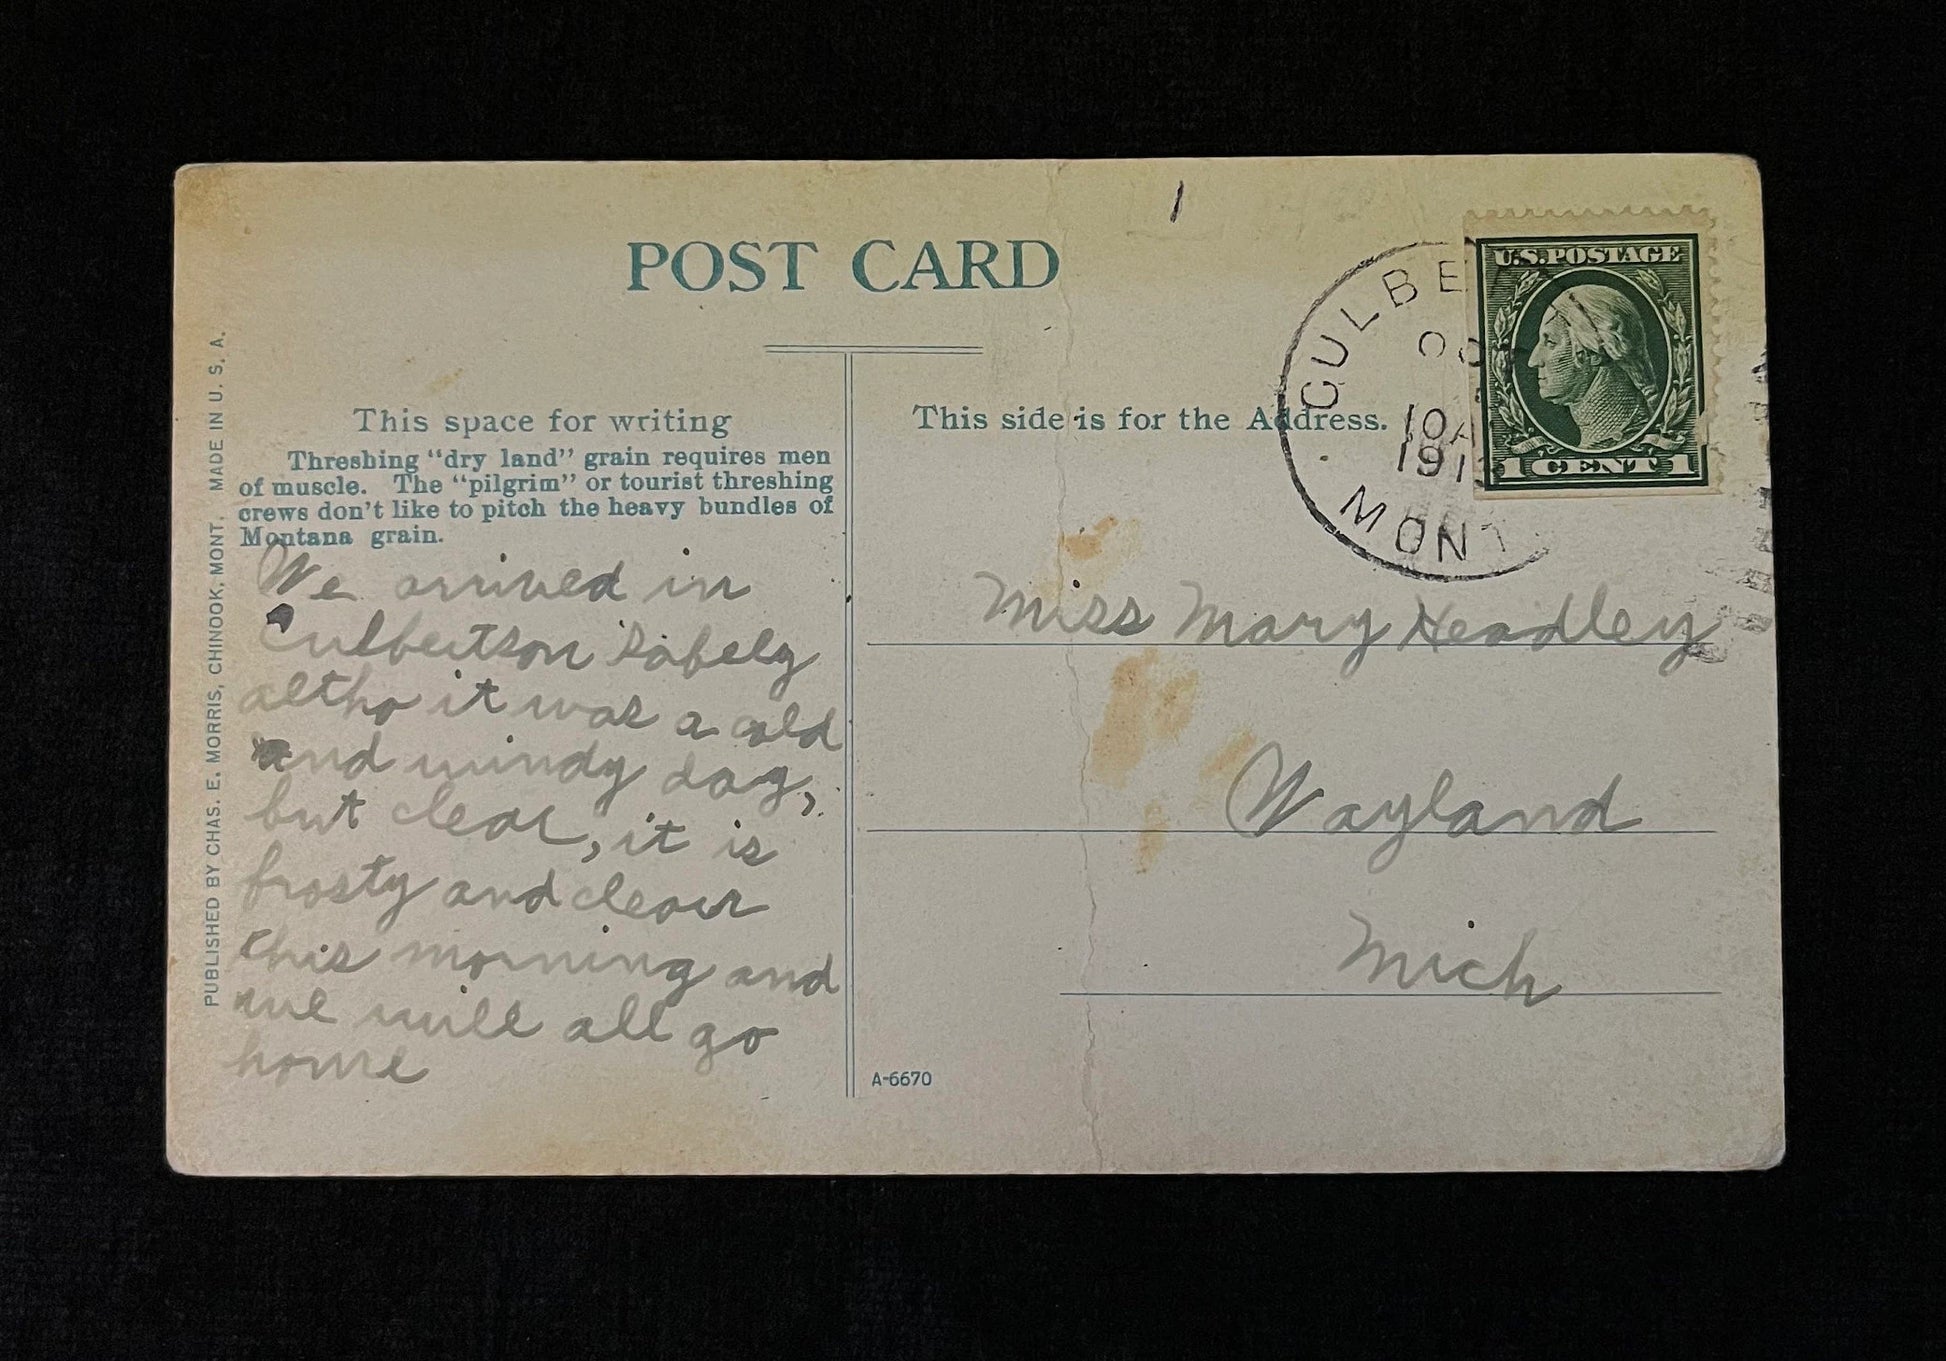 POST CARD
This space for writing
Threshing "dry land" grain requires men
of muscle. The "pilgrim" or tourist threshing
crews don't like to pitch the heavy bundles of
Montana grain.
We arrived in
Culbertson safely
altho it was a cold
and windy day,
but clear, it is
frosty and clear
this morning and
we will all go
home
PUBLISHED BY CHAS. E. MORRIS, CHINOOK, MONT. MADE IN U. S. A.
This side is for the Address.
CULBE
10A
191
MONT
U.S. POSTAGE
1 CENT 1
Miss Mary Headley
Wayland
Mich
A-6670